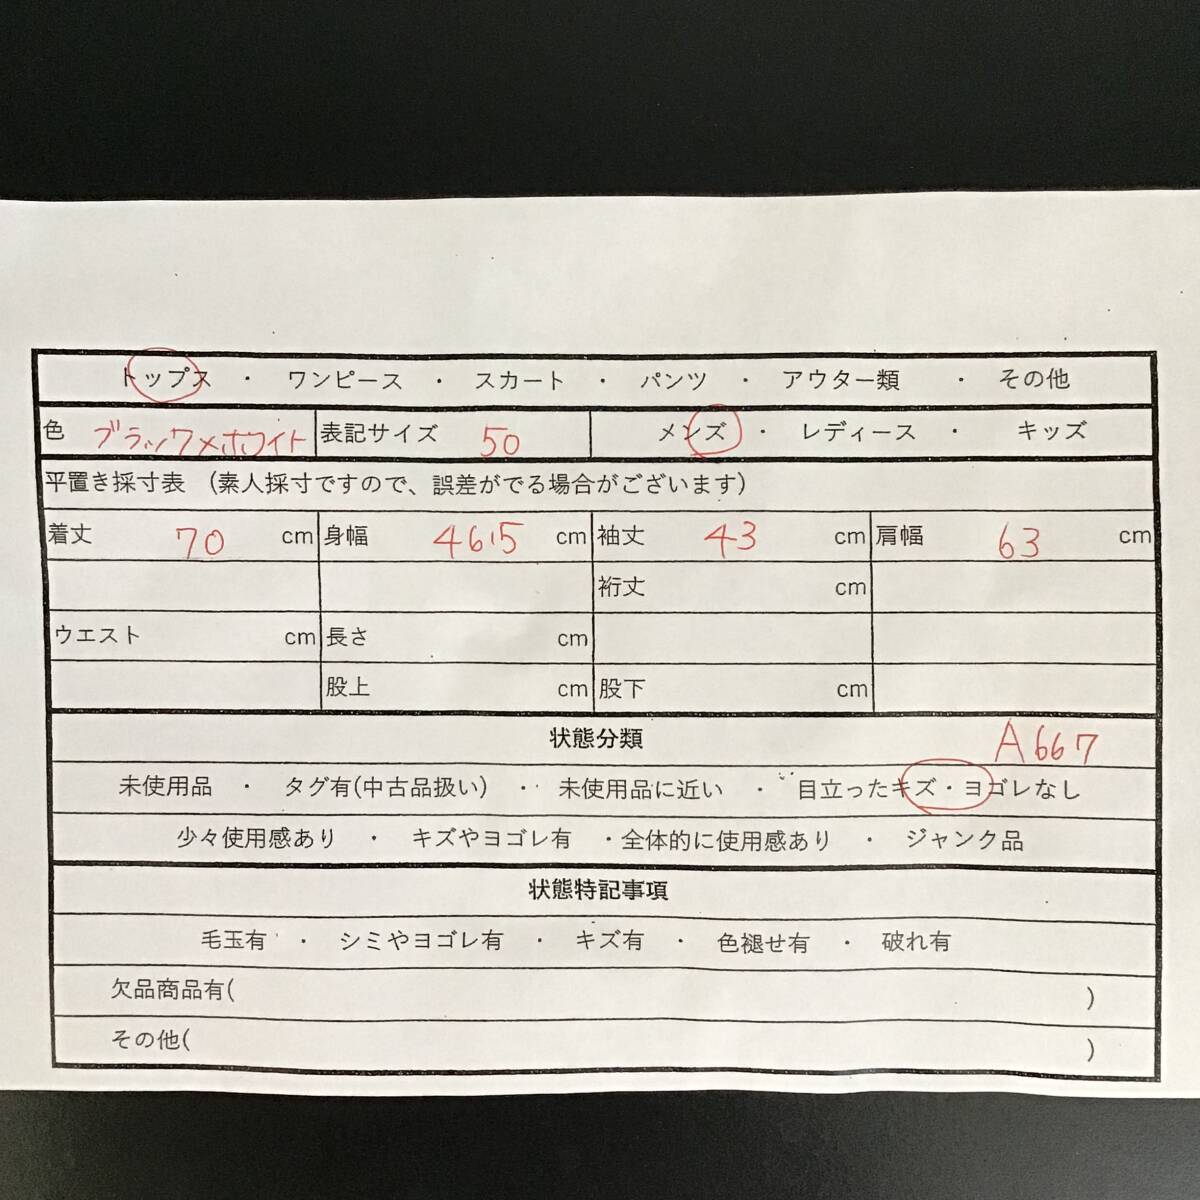 トップス ・ ワンピース ・ スカート ・ パンツ ・ アウター類 ・ その他
色 ブラック×ホワイト 表記サイズ 50 メンズ ・ レディース ・ キッズ
平置き採寸表 (素人採寸ですので、誤差がでる場合がございます)
着丈 70 cm 身幅 46.5 cm 袖丈 43 cm 肩幅 63 cm
裄丈 cm
ウエスト cm 長さ cm
股上 cm 股下 cm
状態分類 A667
未使用品 ・ タグ有(中古品扱い) ・ 未使用品に近い ・ 目立ったキズ・ヨゴレなし
少々使用感あり ・ キズやヨゴレ有 ・全体的に使用感あり ・ ジャンク品
状態特記事項
毛玉有 ・ シミやヨゴレ有 ・ キズ有 ・ 色褪せ有 ・ 破れ有
欠品商品有( )
その他( )